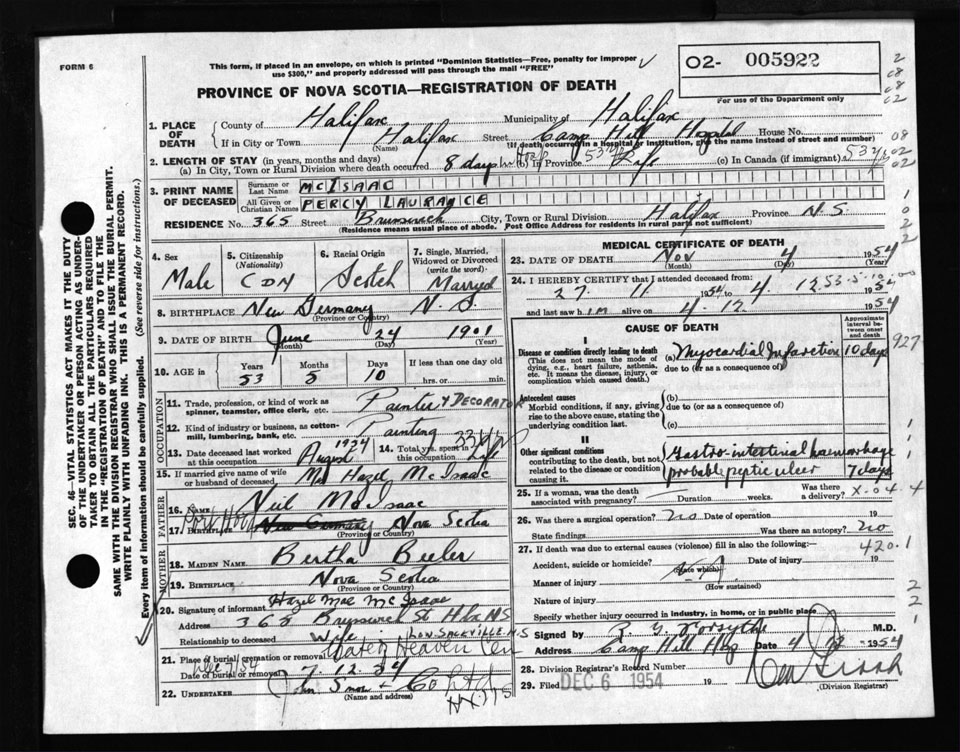 FORM 6
This form, if placed in an envelope, on which is printed "Dominion Statistics—Free, penalty for improper
use $300," and properly addressed will pass through the mail "FREE"
02- 005922
For use of the Department only
PROVINCE OF NOVA SCOTIA—REGISTRATION OF DEATH
1. PLACE OF DEATH
County of Halifax Municipality of Halifax
If in City or Town Halifax Street Camp Hill Hospital House No.
(Name) (If death occurred in a hospital or institution, give the name instead of street and number)
2. LENGTH OF STAY (in years, months and days)
(a) In City, Town or Rural Division where death occurred 8 days in Hosp (b) In Province 53 yrs Life (c) In Canada (if immigrant) 53 yrs
3. PRINT NAME OF DECEASED
Surname or Last Name McISAAC
All Given or Christian Names PERCY LAURANCE
RESIDENCE No. 365 Street Brunswick City, Town or Rural Division Halifax Province N.S.
(Residence means usual place of abode. Post Office Address for residents in rural parts not sufficient)
4. Sex Male
5. Citizenship (Nationality) CDN
6. Racial Origin Scotch
7. Single, Married, Widowed or Divorced (write the word) Married
8. BIRTHPLACE New Germany N.S.
(Province or Country)
9. DATE OF BIRTH June 24 1901
(Month) (Day) (Year)
10. AGE in Years 53 Months 5 Days 10 If less than one day old hrs. or min.
OCCUPATION
11. Trade, profession, or kind of work as spinner, teamster, office clerk, etc. Painter & DECORATOR
12. Kind of industry or business, as cotton-mill, lumbering, bank, etc. Painting
13. Date deceased last worked at this occupation August 1954
14. Total yrs. spent in this occupation Life
15. If married give name of wife or husband of deceased Mrs Hazel McIsaac
FATHER
16. Name Neil McIsaac
17. Birthplace Port Hood New Germany Nova Scotia
(Province or Country)
MOTHER
18. MAIDEN NAME Bertha Beeler
19. BIRTHPLACE Nova Scotia
(Province or Country)
20. Signature of informant Hazel Mae McIsaac
Address 365 Brunswick St Hfx NS
Relationship to deceased Wife
LOW SACKVILLE N.S
21. Place of burial, cremation or removal
Dec 7/54
Date of burial or removal 7.12.54
22. UNDERTAKER John Snow & Co Ltd
(Name and address) Hfx NS
MEDICAL CERTIFICATE OF DEATH
23. DATE OF DEATH Nov 4 1954
(Month) (Day) (Year)
24. I HEREBY CERTIFY that I attended deceased from:
27 11 1954 to 4 12 1954
53-5-10
and last saw him alive on 4.12. 1954
CAUSE OF DEATH
Approximate interval between onset and death
I
Disease or condition directly leading to death
(This does not mean the mode of dying, e.g., heart failure, asthenia, etc. It means the disease, injury, or complication which caused death.)
(a) Myocardial Infarction 10 days
due to (or as a consequence of)
927
Antecedent causes
Morbid conditions, if any, giving rise to the above cause, stating the underlying condition last.
(b)
due to (or as a consequence of)
(c)
II
Other significant conditions
contributing to the death, but not related to the disease or condition causing it.
Gastro-intestinal haemorrhage
probable peptic ulcer 7 days
25. If a woman, was the death associated with pregnancy? Duration weeks Was there a delivery?
26. Was there a surgical operation? no Date of operation 19
State findings Was there an autopsy? no
27. If death was due to external causes (violence) fill in also the following: 420.1
Accident, suicide or homicide? Date of injury 19
(State which)
Manner of injury
(How sustained)
Nature of injury
Specify whether injury occurred in industry, in home, or in public place
Signed by R. G. Forsythe M.D.
Address Camp Hill Hosp Date 4 12 1954
28. Division Registrar's Record Number
29. Filed DEC 6 1954 19
(Division Registrar)
SEC. 46—VITAL STATISTICS ACT MAKES IT THE DUTY
OF THE UNDERTAKER OR PERSON ACTING AS UNDER-
TAKER TO OBTAIN ALL THE PARTICULARS REQUIRED
IN THE "REGISTRATION OF DEATH" AND TO FILE THE
SAME WITH THE DIVISION REGISTRAR WHO SHALL ISSUE THE BURIAL PERMIT.
WRITE PLAINLY WITH UNFADING INK. THIS IS A PERMANENT RECORD.
Every item of information should be carefully supplied. (See reverse side for instructions.)